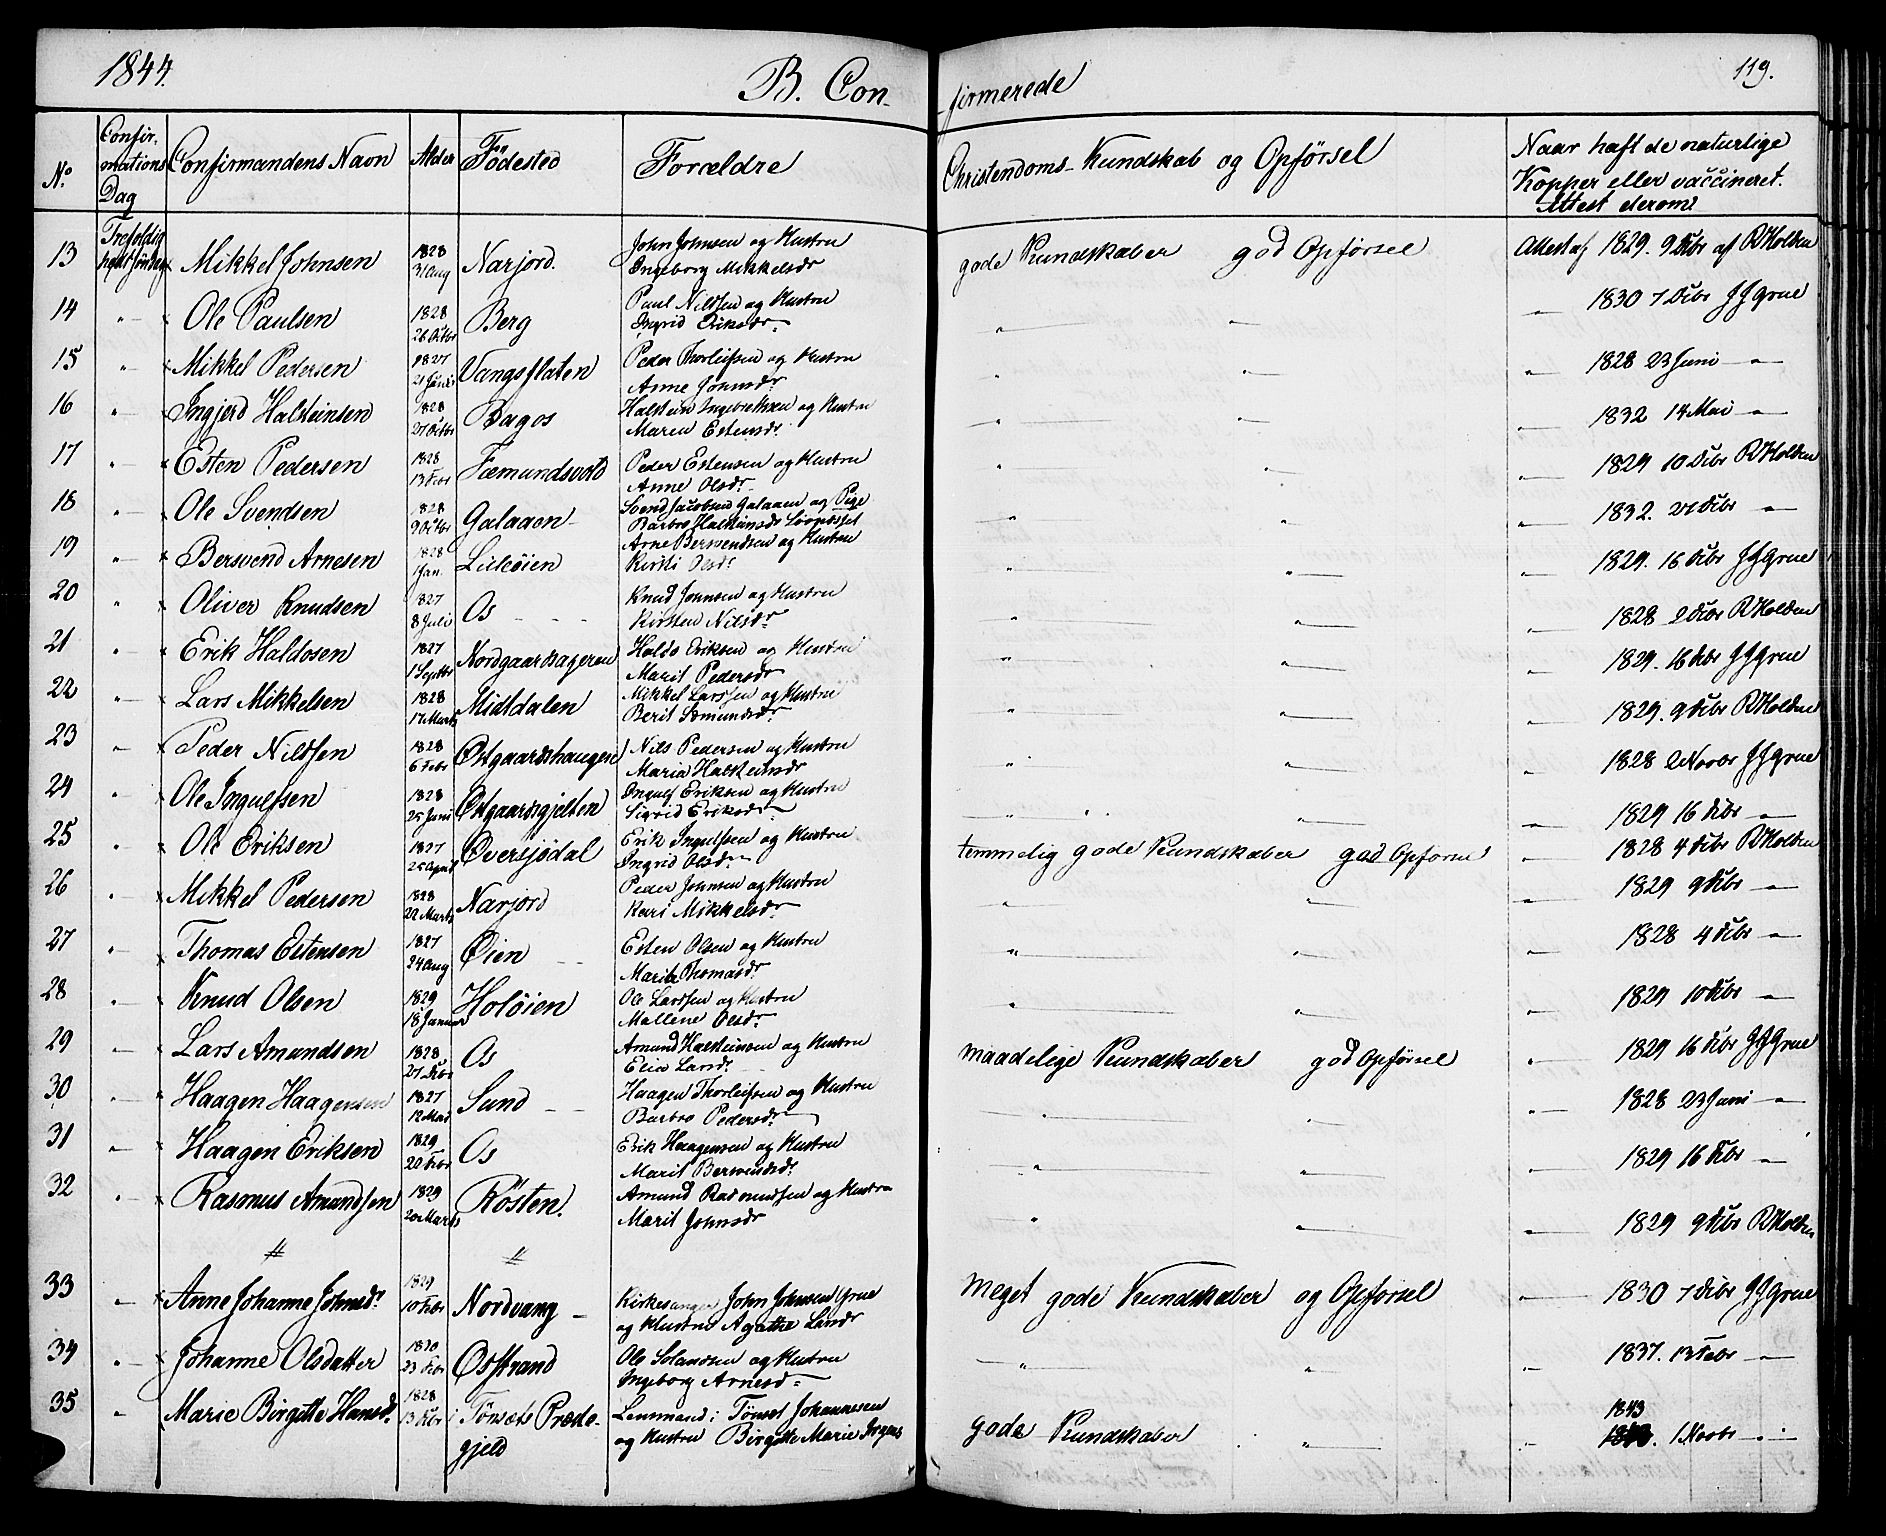 1844.
B. Con-
firmerede
119.
No.
Confirmations Dag
Confirmandens Navn
Alder
Födested
Forældre
Christendoms-Kundskab og Opförsel
Naar haft de naturlige
Kopper eller vaccineret.
Attest derom
13 Trefoldigheds Söndag Mikkel Johnsen 1828 31 Aug Narjord. John Johnsen og Hustru Ingeborg Mikkelsdr gode Kundskaber god Opförsel Attest af 1829. 9 Dcbr af R Holden
14 " Ole Paulsen 1828 26 Octbr Berg Paul Nilssen og Hustru Ingrid Eriksdr " " " 1830 7 Dcbr J J Grue
15 " Mikkel Pedersen 1827 Vangsflaten Peder Thorleifsen og Hustru Anne Jonsdr " " " 1828 23 Juni "
16 " Ingjerd Halsteinsen 1828 27 Octbr Bagos Halstein Ingebretsen og Hustru Maren Estensdr " " " 1832 14 Mai "
17 " Esten Pedersen 1828 13 Febr Fæmundsvold Peder Estensen og Hustru Anne Olsdr " " " 1829 10 Dcbr R Holden
18 " Ole Svendsen 1828 9 Octbr Galaaen Svend Jacobsen Galaaen og Pige Barbro Halsteinsdr " " " 1832. 21 Dcbr "
19 " Bersvend Arnesen 1828 1 Jan. Lilleöien Arne Bersvendsen og Hustru Kirsti Olsdr " " " 1829. 16 Dcbr J J Grue
20 " Oliver Knudsen 1827 8 Juli Os Knud Johnsen og Hustru Kirsten Nilsdr " " " 1828 2 Dcbr R Holden
21 " Erik Haldosen 1827 1 Septbr Nordgaardsageren Haldo Eriksen og Hustru Marit Pedersdr " " " 1829. 16 Dcbr J J Grue
22 " Lars Mikkelsen 1828 17 Marts Midtdalen Mikkel Larssen og Hustru Berit Semundsdr " " " 1829. 9 Dcbr R Holden
23 " Peder Nilssen 1828 6 Febr Östgaardshaugen Nils Pedersen og Hustru Maria Halsteinsdr " " " 1828 2 Novbr J J Grue
24 " Ole Ingulfsen 1828 25 Juni Östgaardsgjelten Ingulf Eriksen og Hustru Sigrid Eriksdr " " " 1829 16 Dcbr "
25 " Ole Eriksen 1827 25 April Översjödal Erik Ingulfsen og Hustru Ingrid Olsdr temmelig gode Kundskaber god Opförsel " 1828 4 Dcbr R Holden
26 " Mikkel Pedersen 1828 22 Marts Narjord Peder Johnsen og Hustru Kari Mikkelsdr " " " 1829 9 Dcbr "
27 " Thomas Estensen 1827 24 Aug Öien Esten Olsen og Hustru Marit Thomasdr " " " 1828 4 Dcbr "
28 " Knud Olsen 1829 18 Januar Holöien Ole Larssen og Hustru Mallene Olsdr " " " 1829 10 Dcbr "
29 " Lars Amundsen 1828 27 Dcbr Os Amund Halsteinsen og Hustru Elia Larsdr maadelige Kundskaber god Opförsel " 1829 16 Dcbr J J Grue
30 " Haagen Haagensen 1827 12 Mai Sund Haagen Thorleifsen og Hustru Barbro Pedersdr " " " 1828 23 Juni "
31 " Haagen Eriksen 1829 20 Febr Os Erik Haagensen og Hustru Marit Bersvendsdr " " " 1829 16 Dcbr "
32 " Rasmus Amundsen 1829 20 Marts Kösten. Amund Rasmussen og Hustru Marit Johnsdr " " " 1829 9 Dcbr R Holden
33 " Anne Johanne Johnsdr 1829 10 Febr Nordvang Kirkesanger John Johnsen Grue og Hustru Agathe Larsdr meget gode Kundskaber og Opförsel " 1830 7 Dcbr J J Grue
34 " Johanne Olsdatter 1830 23 Febr Osstrand Ole og Hustru Ingeborg Arnesdr " " " 1837. 13 Febr "
35 " Marie Birgitte Hansdr 1828 13 Dcbr i Tönsets Præstegjeld Lensmand i Tönset Johannesen og Hustru Birgitte Marie gode Kundskaber " " 1843 1 Novbr "